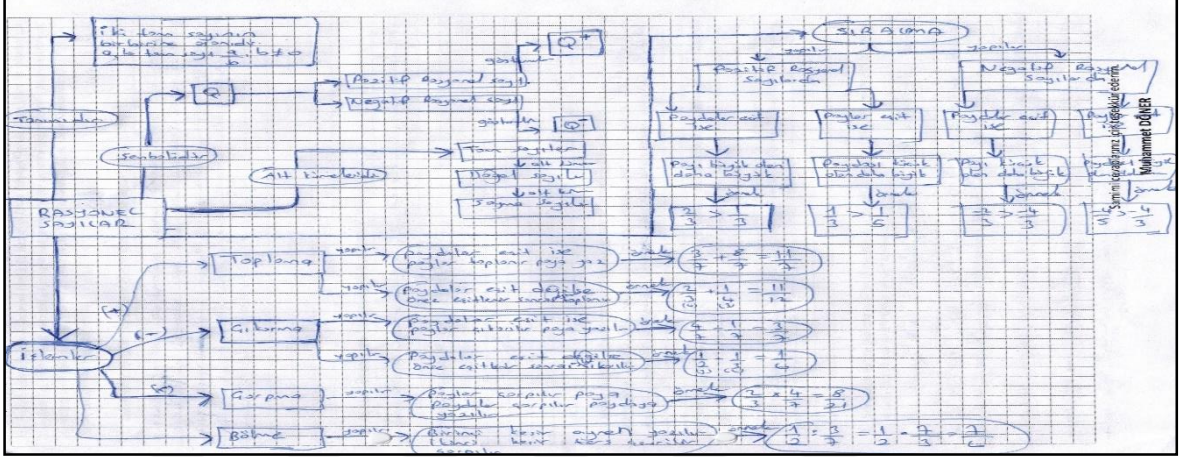 iki tam sayının
birbirine oranıdır.
a, b tam sayı a/b, b≠0
Tanımıdır
Sembolüdür
Q
Pozitif Rasyonel sayı
Negatif Rasyonel sayı
gösterilir
Q⁺
gösterilir
Q⁻
Alt kümeleridir
Tam sayılar
alt küme
Doğal sayılar
alt küme
Sayma sayıları
RASYONEL
SAYILAR
SIRALAMA
yapılır
yapılır
Pozitif Rasyonel
Sayılarda
Negatif Rasyonel
Sayılarda
Paydalar eşit
ise
Paylar eşit
ise
Paydalar eşit
ise
Payı büyük olan
daha büyük
Paydası küçük
olan daha büyük
Payı küçük
olan daha büyük
örnek
örnek
örnek
örnek
2/3 > 1/3
1/3 > 1/5
-4/5 > -4/3
Samimi cevaplarınız için teşekkür ederim.
Muhammet DÖNER
İşlemler
(+)
(-)
Toplama
yapılır
Paydalar eşit ise
paylar toplanır paya yaz
örnek
3/7 + 8/7 = 11/7
yapılır
Paydalar eşit değilse
önce eşitlenir sonra toplanır
örnek
2/3 + 1/4 = 11/12
(4) (3)
Çıkarma
yapılır
Paydalar eşit ise
paylar çıkarılır paya yazılır
örnek
4/7 - 1/7 = 3/7
yapılır
Paydalar eşit değilse
önce eşitlenir sonra çıkarılır
örnek
Çarpma
yapılır
Paylar çarpılır paya
Paydalar çarpılır paydaya
yazılır
örnek
2/3 × 4/7 = 8/21
Bölme
yapılır
Birinci kesir aynen yazılır
kesir ters çevrilir
çarpılır
örnek
1/2 : 3/7 = 1/2 · 7/3 = 7/6